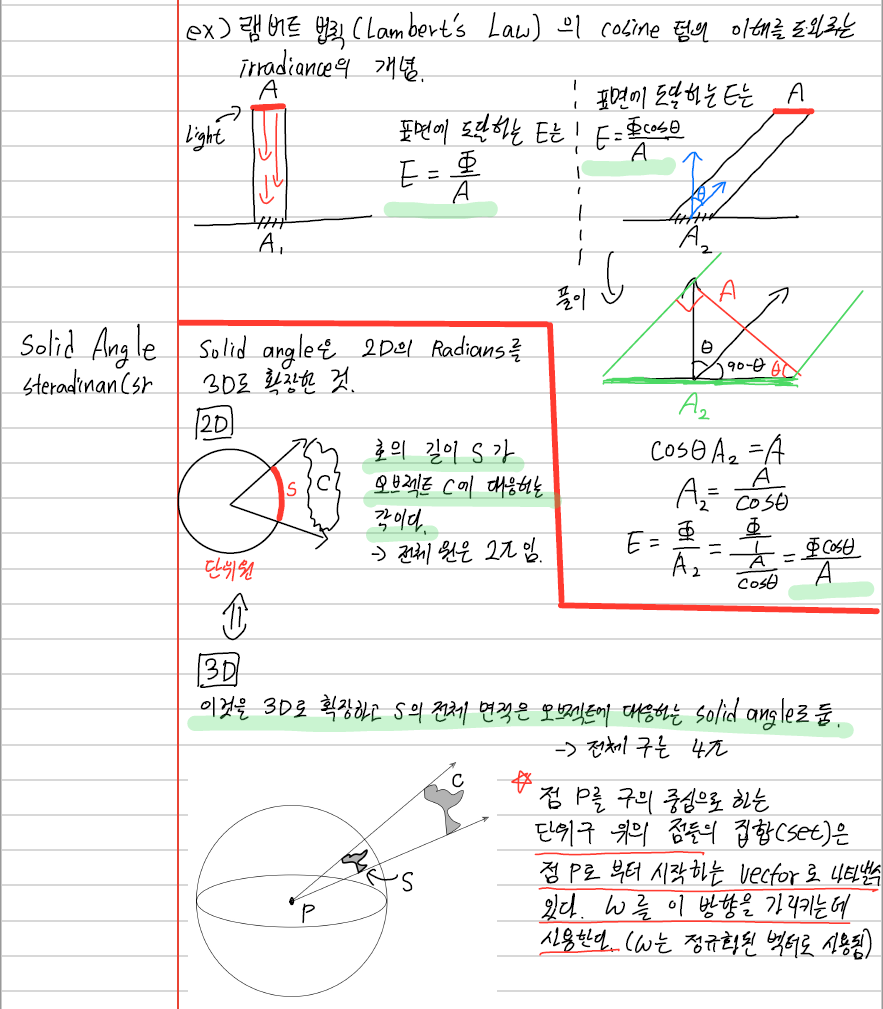 ex) 램버트 법칙(Lambert's Law) 의 cosine 텀의 이해를 도와주는
irradiance의 개념.
A
Light
표면에 도달하는 E는
E = Φ/A
A₁
표면에 도달하는 E는
E = Φcosθ/A
A
θ
A₂
풀이
A
θ
90-θ
θ
A₂
cosθA₂ = A
A₂ = A/cosθ
E = Φ/A₂ = (Φ/1)/(A/cosθ) = Φcosθ/A
Solid Angle
steradinan(sr
Solid angle은 2D의 Radians를
3D로 확장한 것.
2D
S
C
단위원
호의 길이 S가
오브젝트 C에 대응하는
각이다.
-> 전체 원은 2π임.
3D
이것을 3D로 확장하고 S의 전체 면적은 오브젝트에 대응하는 solid angle로 둠.
-> 전체 구는 4π
C
S
P
점 P를 구의 중심으로 하는
단위구 위의 점들의 집합(set)은
점 P로 부터 시작하는 vector로 나타낼수
있다. ω를 이 방향을 가리키는데
사용한다. (ω는 정규화된 벡터로 사용됨)